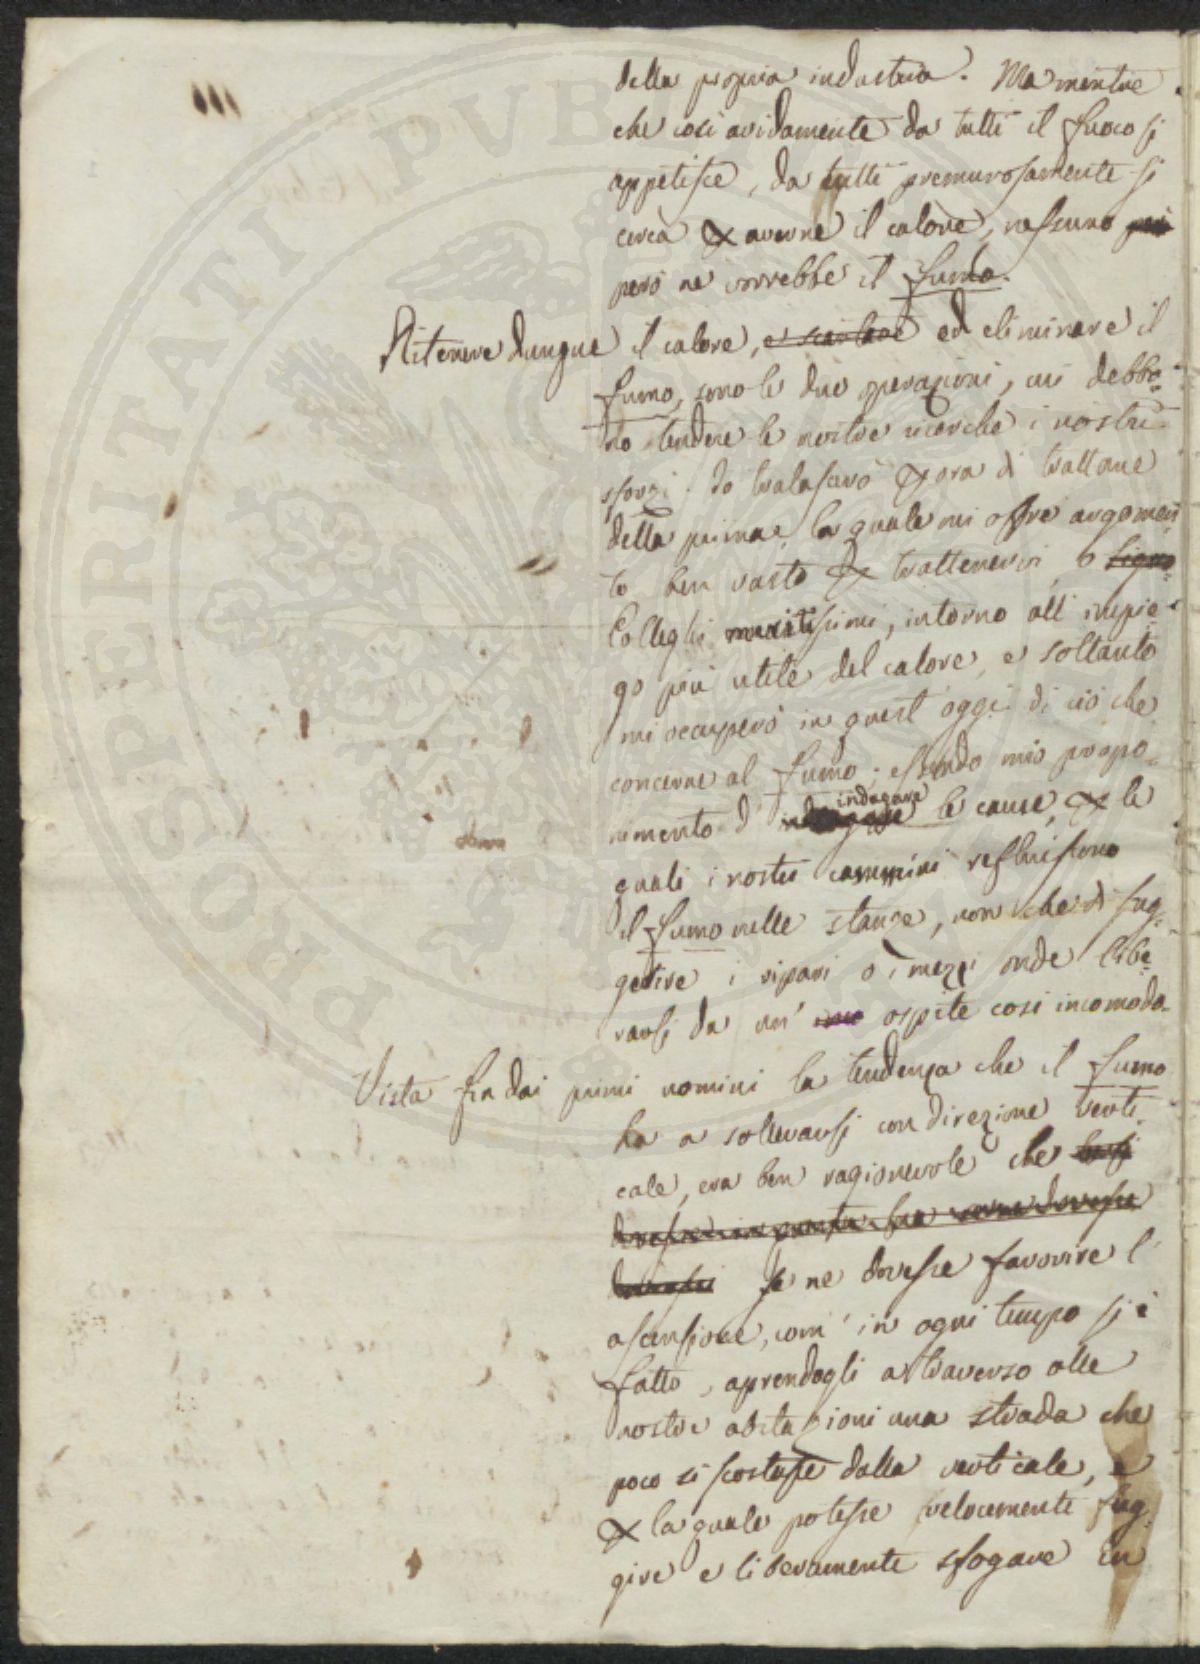 della propria industria. Ma mentre
che così avidamente da tutti il fuoco si
appetisce, da tutti premurosamente si
cerca per averne il calore, nessuno
però ne vorrebbe il fumo.
Ritenere dunque il calore, ed eliminare il
fumo, sono le due operazioni, cui debbo-
no tendere le nostre ricerche i nostri
sforzi. Io tralascerò per ora di trattare
della prima, la quale mi offre argomen-
to ben vasto per trattenervi, o
Colleghi meritissimi, intorno all'impie-
go più utile del calore, e soltanto
mi occuperò in quest'oggi di ciò che
concerne al fumo; essendo mio propo-
nimento d' indagare le cause, per le
quali i nostri cammini rifluiscono
il fumo nelle stanze, non che di sug-
gerire i ripari o i mezzi onde libe-
rarsi da un' ospite così incomodo.
Vista fin dai primi uomini la tendenza che il fumo
ha a sollevarsi con direzione verti-
cale, era ben ragionevole che
se ne dovesse favorire l'
ascensione, com' in ogni tempo si è
fatto, aprendogli attraverso alle
nostre abitazioni una strada che
poco si scostasse dalla verticale, e
per la quale potesse velocemente fug-
gire e liberamente sfogare in
PROSPERITATI PUBLI